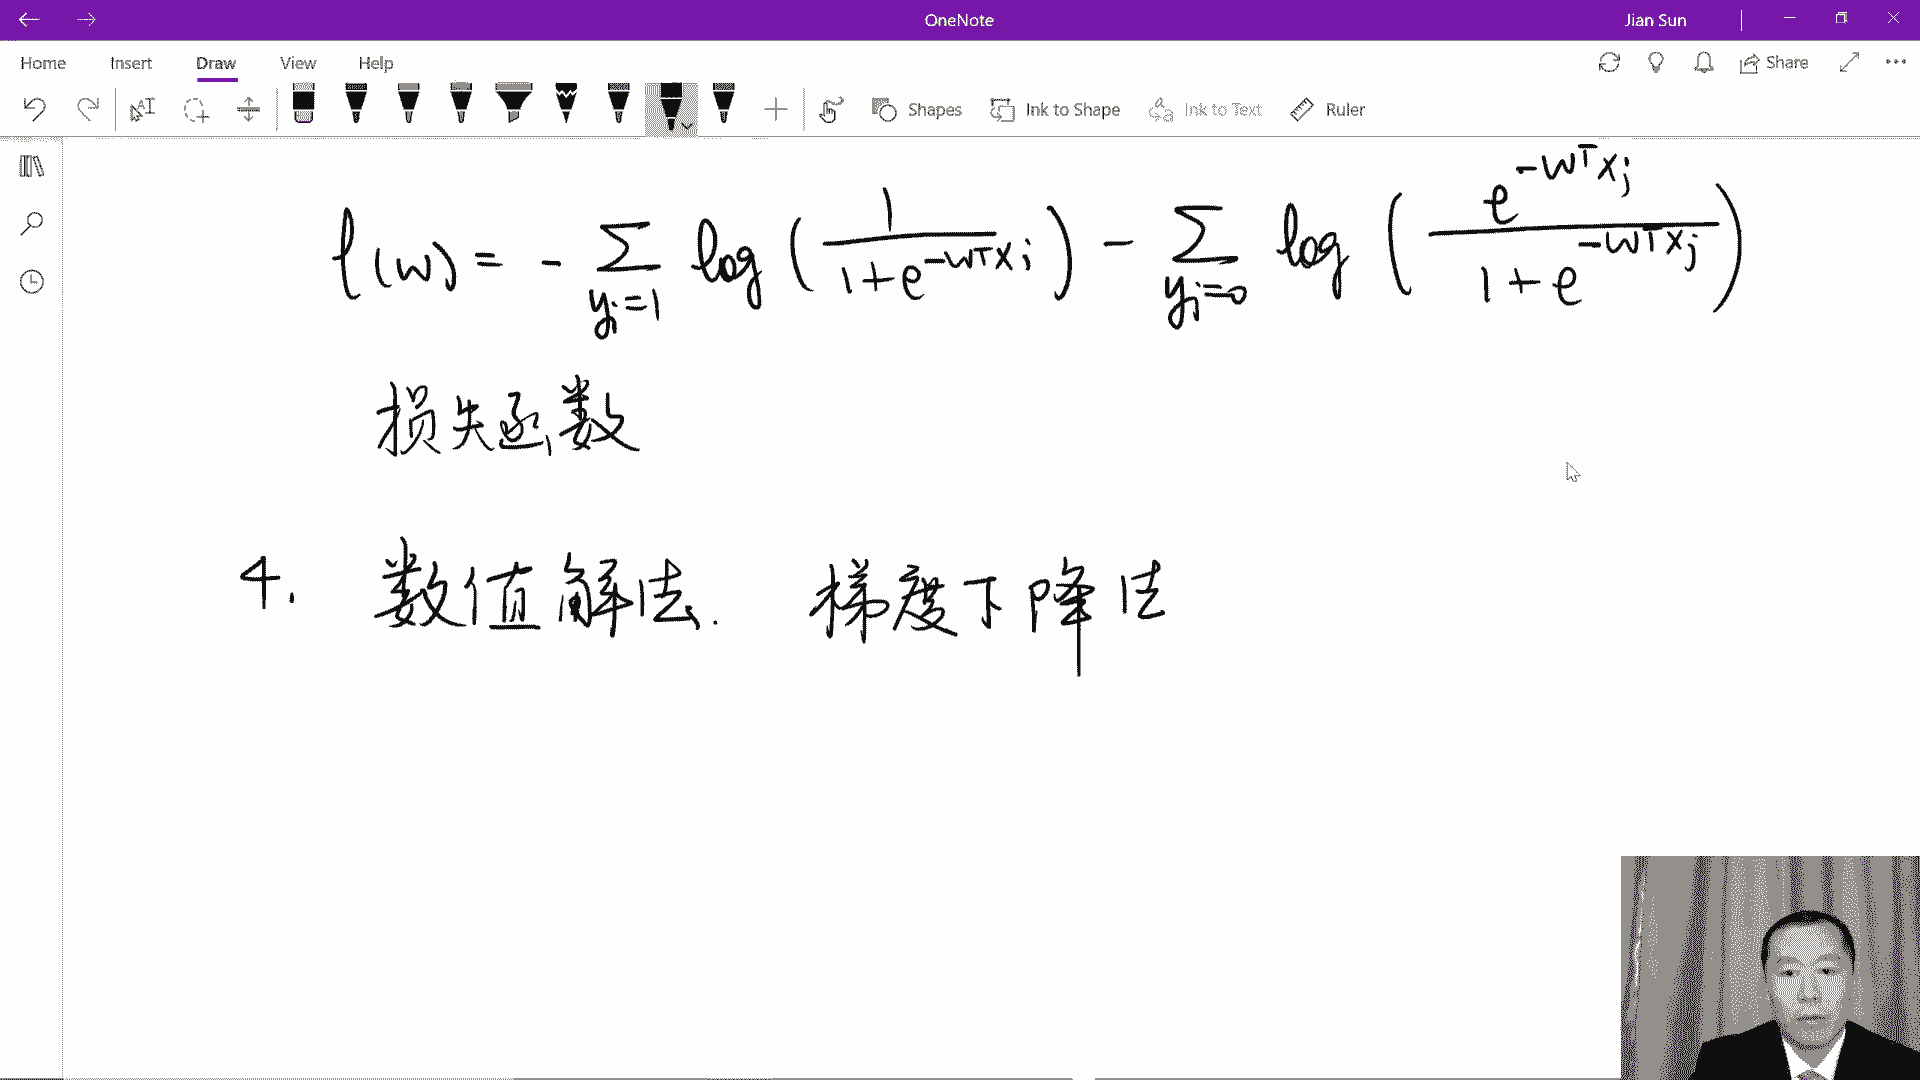 OneNote
Jian Sun
Home Insert Draw View Help
Share
Shapes Ink to Shape Ink to Text Ruler
l(w) = - Σ_{y_i=1} log ( 1 / (1+e^{-w^T x_i}) ) - Σ_{y_j=0} log ( e^{-w^T x_j} / (1+e^{-w^T x_j}) )
损失函数
4. 数值解法. 梯度下降法